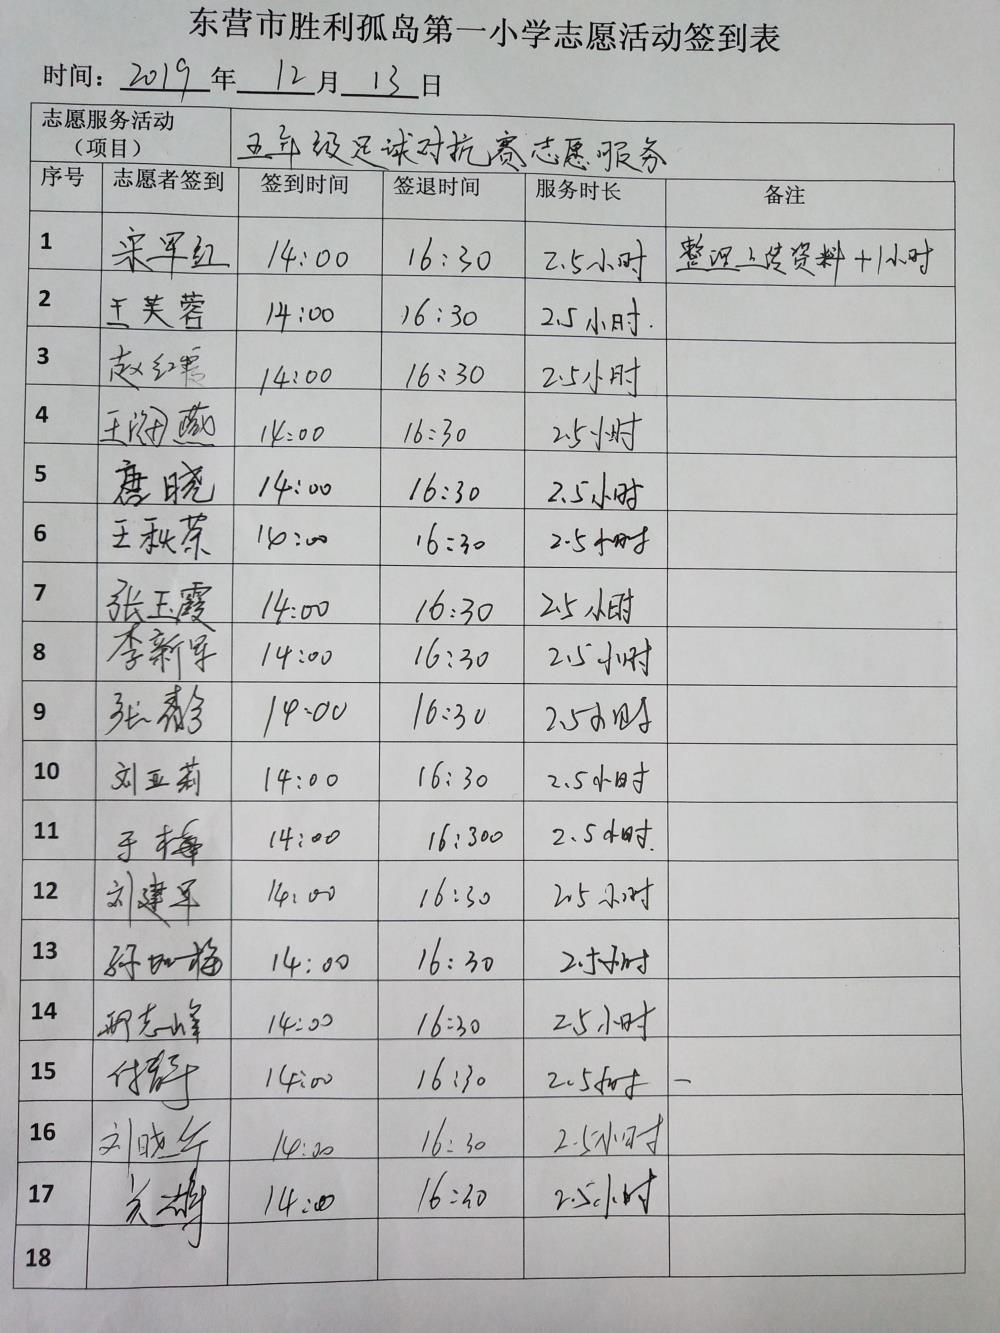 东营市胜利孤岛第一小学志愿活动签到表
时间：2019年12月13日
志愿服务活动（项目） 五年级足球对抗赛志愿服务
序号 志愿者签到 签到时间 签退时间 服务时长 备注
1 宋军红 14:00 16:30 2.5小时 整理上传资料+1小时
2 王芙蓉 14:00 16:30 2.5小时.
3 赵红霞 14:00 16:30 2.5小时
4 王海燕 14:00 16:30 2.5小时
5 唐晓 14:00 16:30 2.5小时
6 王秋荣 14:00 16:30 2.5小时
7 张玉霞 14:00 16:30 2.5小时
8 李新军 14:00 16:30 2.5小时
9 张静 14:00 16:30 2.5小时
10 刘亚莉 14:00 16:30 2.5小时
11 于梅 14:00 16:300 2.5小时.
12 刘建军 14:00 16:30 2.5小时
13 14:00 16:30 2.5小时
14 14:00 16:30 2.5小时
15 14:00 16:30 2.5小时 —
16 14:00 16:30 2.5小时
17 14:00 16:30 2.5小时
18